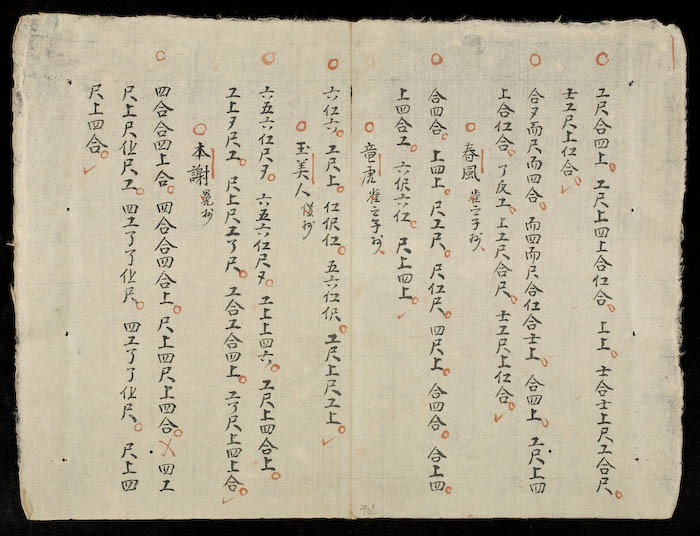 工尺合四上。工尺上四上合仜合。上上。士合士上尺工合尺。
士工尺上仜合。
合而尺而四合。而四而尺合仜合士上。合四上。工尺上四
上合仜合。了反工。上工尺合尺。士工尺上仜合。
春風
合四合。上四上。尺工尺。尺仜尺。四尺上。合四合。合上四
上四合工。六伬六仜。尺上四上。
童
六仜六。工尺上。仜伬仜。五六仜伬。工尺上尺工上。
玉美人
六五六仜尺。六五六仜尺。工上上四六。工尺上四合上。
工上尺工。尺上尺工了尺。工合工合四上。工了尺上四上合。
本謝
四合合四上合。四合合四合上。尺上四尺上四合。四工
尺上尺仩尺工。四工了了仩尺。四工了了仩尺。尺上四
尺上四合。